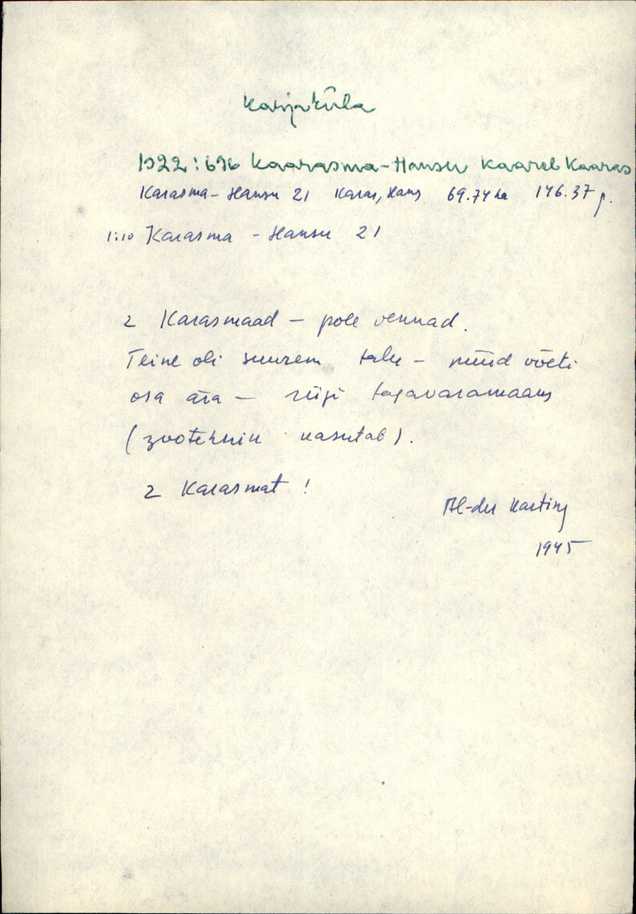 Karjaküla
1922:696 Kaarasma-Hansu Kaarel Kaaras
Karasma-Hansu 21 Karas, Hans 69.74 ha 146.37 p.
1:10 Karasma - Hansu 21
2 Karasmaad – pole vennad.
Teine oli suurem talu – nüüd võeti
osa ära – riigi tagavaramaaks
(zootehnik kasutab).
2 Karasmat!
Al-der
1945